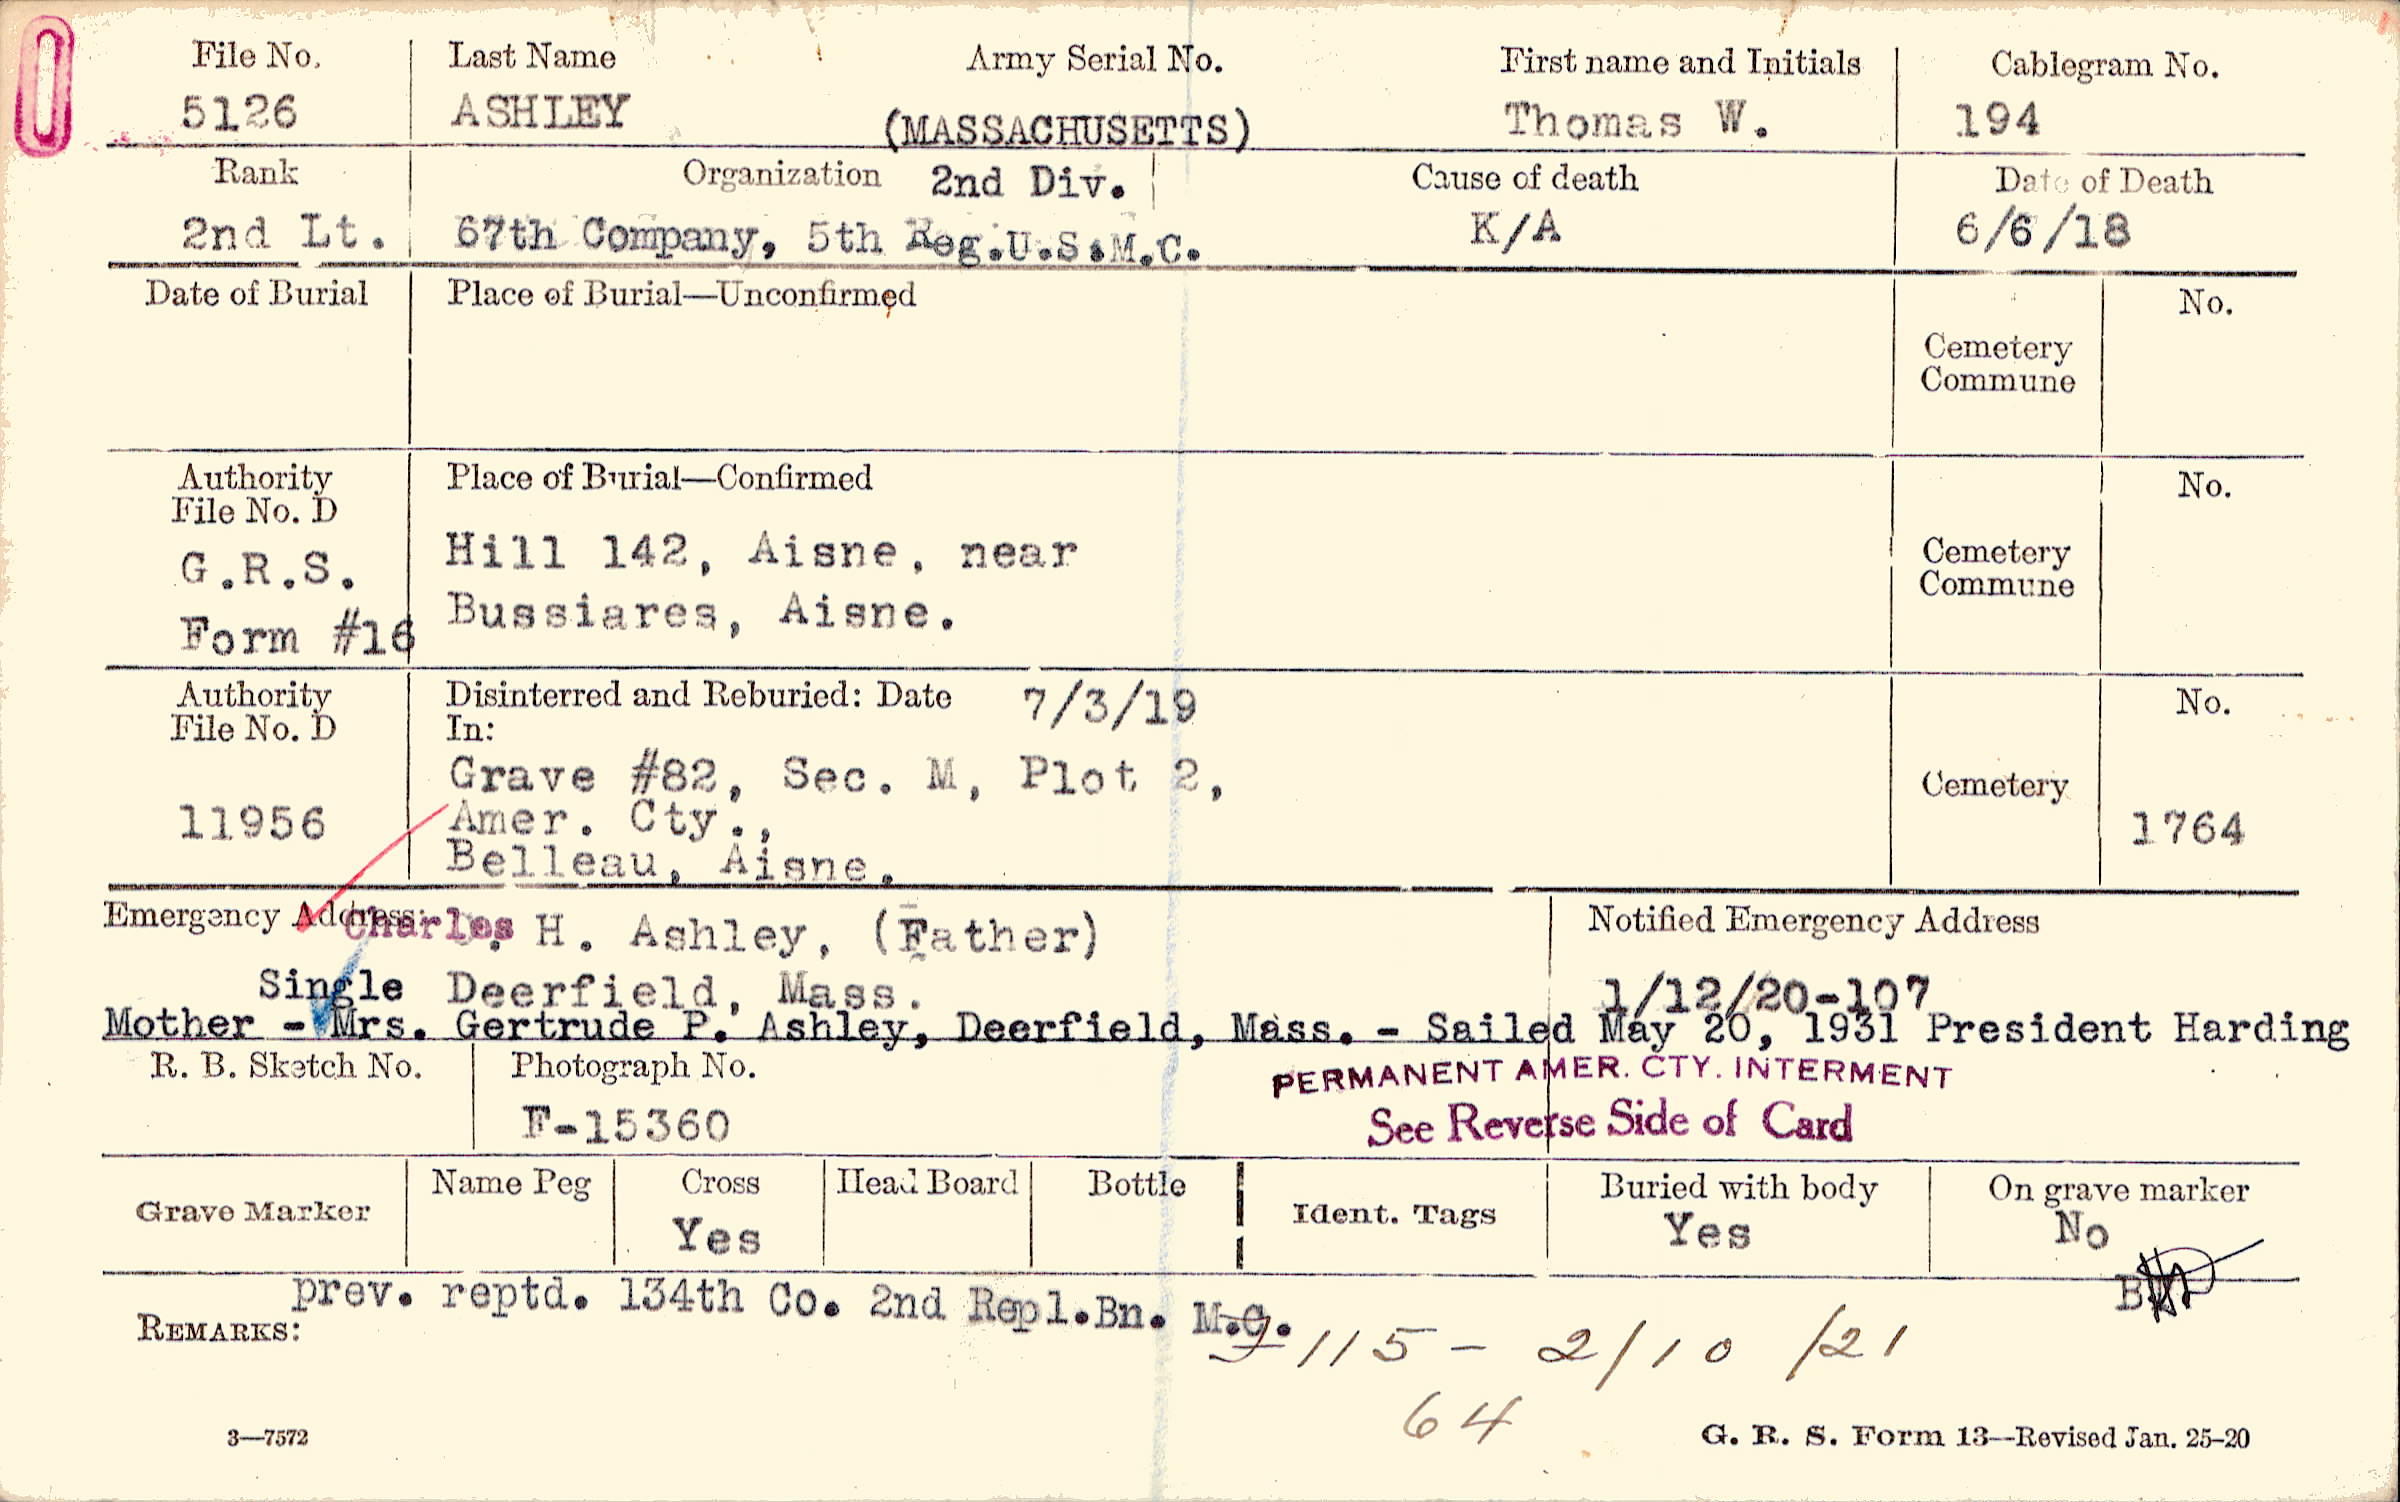 File No. Last Name Army Serial No. First name and Initials Cablegram No.
5126 ASHLEY (MASSACHUSETTS) Thomas W. 194
Rank Organization 2nd Div. Cause of death Date of Death
2nd Lt. 67th Company, 5th Reg.U.S.M.C. K/A 6/6/18
Date of Burial Place of Burial—Unconfirmed No.
Cemetery
Commune
Authority Place of Burial—Confirmed No.
File No. D
G.R.S. Hill 142, Aisne, near Cemetery
Commune
Form #16 Bussiares, Aisne.
Authority Disinterred and Reburied: Date 7/3/19 No.
File No. D In:
Grave #82, Sec. M, Plot 2, Cemetery
11956 Amer. Cty., 1764
Belleau, Aisne.
Emergency Address: Charles H. Ashley, (Father) Notified Emergency Address
Single Deerfield, Mass. 1/12/20-107
Mother - Mrs. Gertrude P. Ashley, Deerfield, Mass. - Sailed May 20, 1931 President Harding
R. B. Sketch No. Photograph No. PERMANENT AMER. CTY. INTERMENT
F-15360 See Reverse Side of Card
Grave Marker Name Peg Cross Head Board Bottle Ident. Tags Buried with body On grave marker
Yes Yes No
prev. reptd. 134th Co. 2nd Repl.Bn. M.C.
REMARKS: 115 - 2/10/21
64
3—7572 G. R. S. Form 13—Revised Jan. 25-20